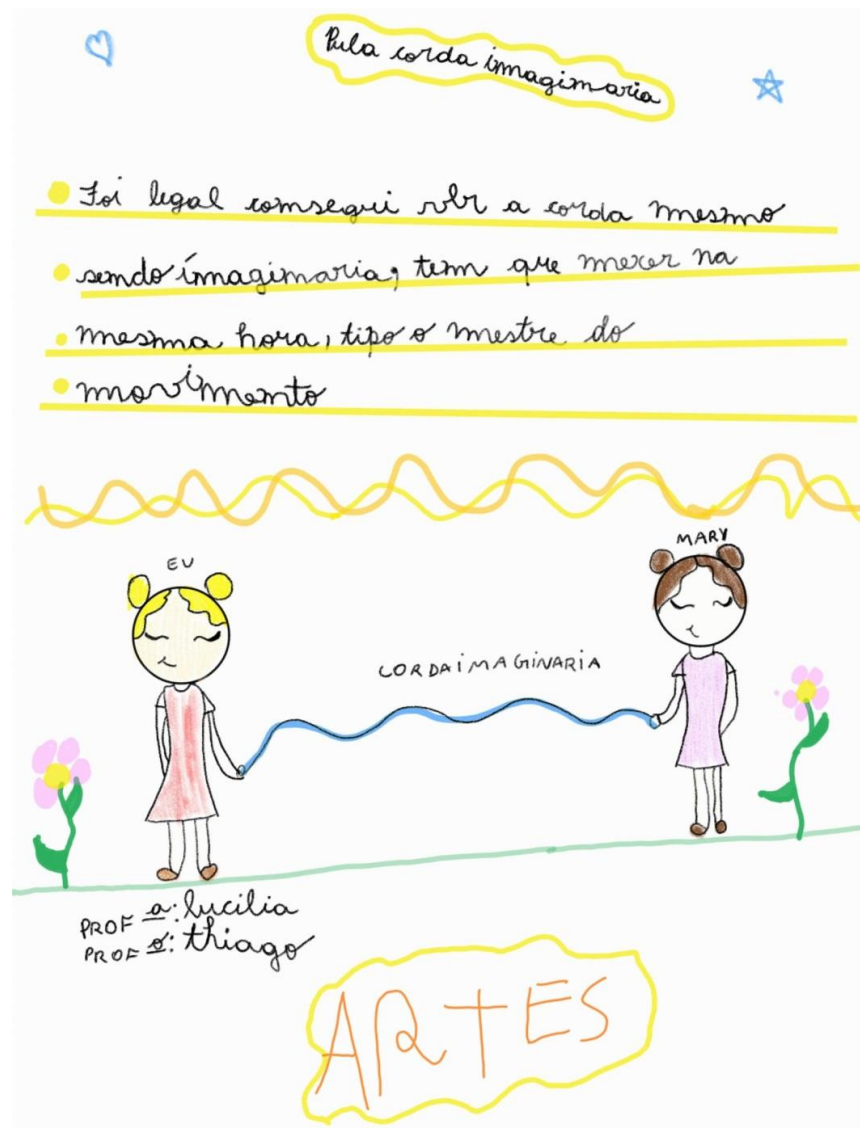 Pula corda imaginaria
Foi legal consegui ver a corda mesmo
sendo imaginaria, tem que mecer na
mesma hora, tipo o mestre do
movimento
EU
MARY
CORDA iMAGiNARiA
PROF a: Lucilia
PROF o: thiago
ARTES